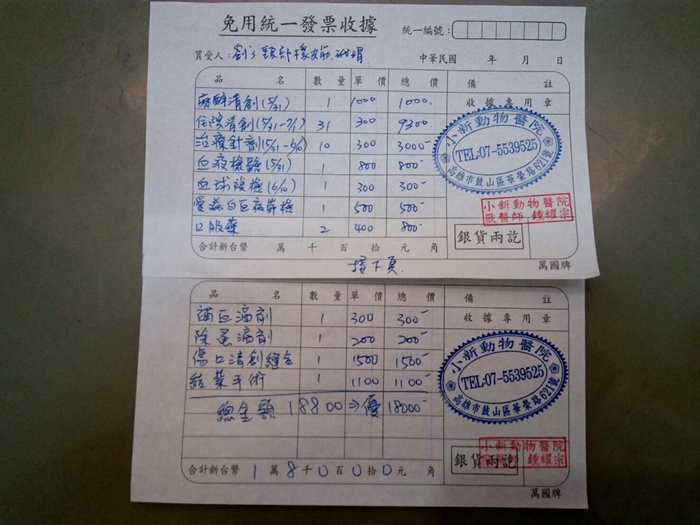 免用統一發票收據
統一編號:
買受人:
中華民國 年 月 日
品 名 數量 單價 總價 備 註
收據專用章
麻醉清創(5/31) 1 1000 1000.
住院清創(5/31-7/1) 31 300 9300
治療針劑(5/31-6/10) 10 300 3000-
血液檢驗(5/31) 1 800 800-
血球複檢(6/10) 1 300 300-
愛滋白血病篩檢 1 500 500-
口服藥 2 400 800-
小新動物醫院
TEL:07-5539525
高雄市鼓山區華榮路621號
小新動物醫院
獸醫師 鍾耀宗
銀貨兩訖
合計新台幣 萬 千 百 拾 元 角
萬國牌
接下頁
品 名 數量 單價 總價 備 註
收據專用章
補血滴劑 1 300 300-
除蚤滴劑 1 200 200-
傷口清創縫合 1 1500 1500-
結紮手術 1 1100 1100-
總金額 18800⇒優 18000-
小新動物醫院
TEL:07-5539525
高雄市鼓山區華榮路621號
小新動物醫院
獸醫師 鍾耀宗
銀貨兩訖
合計新台幣 1 萬 8 千 0 百 0 拾 0 元 角
萬國牌